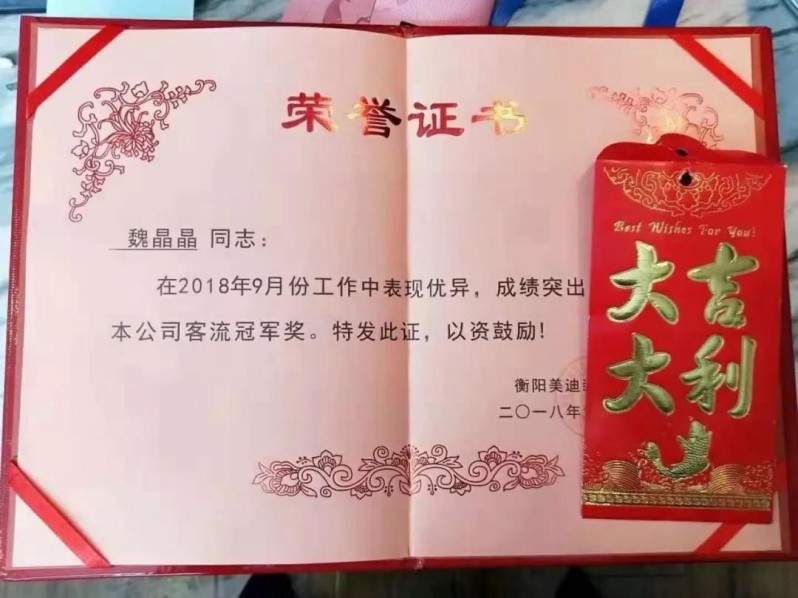 荣誉证书
魏晶晶 同志：
在2018年9月份工作中表现优异，成绩突出
本公司客流冠军奖。特发此证，以资鼓励!
衡阳美迪
二〇一八年
Best Wishes For You!
大吉
大利